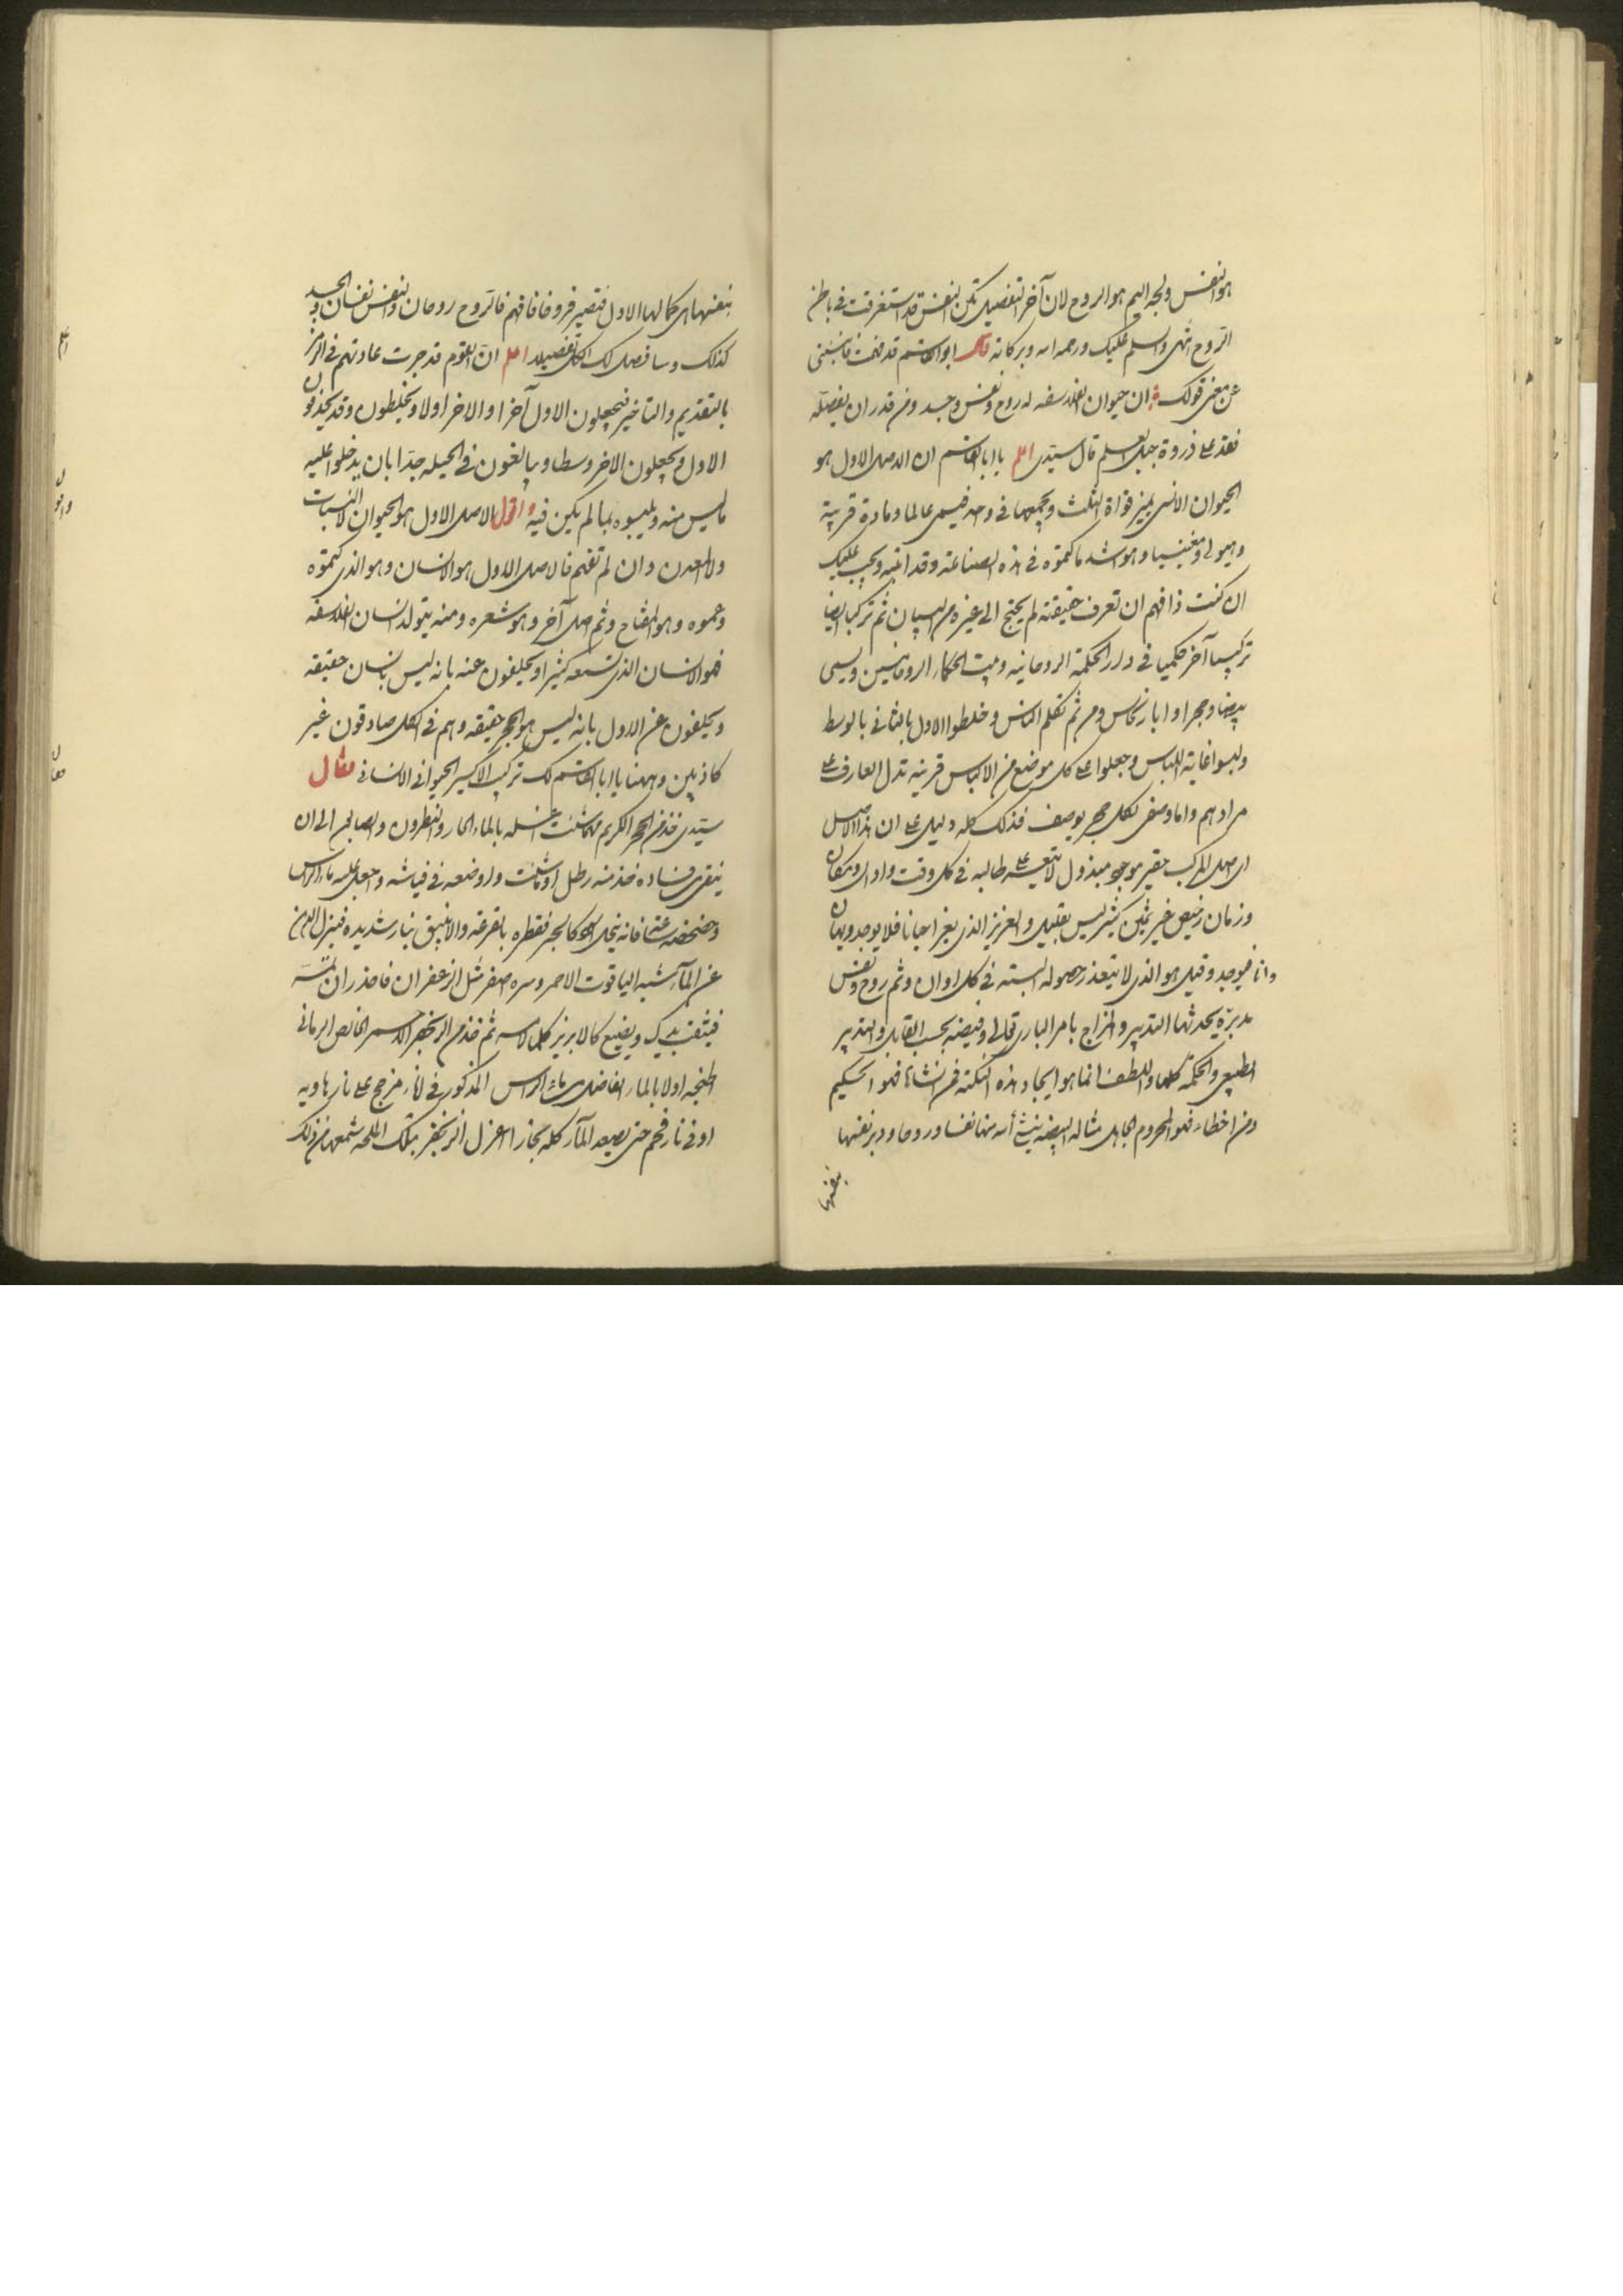 هو النفس ولجه اليم هو الروح لان آخر التفصيل تكن النفس قد استغرقت فى باطن
الروح انتهى والسلم عليك ورحمه الله وبركاته قال ابو القاسم قد فهمت
عن معنى قولك ان حيوان الفلاسفه له روح ونفس وجسد ومن قدر ان يفصله
فقد على ذروة جبل العلم قال سيدى اعلم يا ابا القاسم ان الاصل الاول هو
الحيوان الانسى يميز قواة الثلث ويجمعها فى واحد فيسمى عالما ومادة قريبة
وهيولى ومغنيسيا وهو اشد ما كتموه فى هذه الصناعته وقد ويجب عليك
ان كنت ذا فهم ان تعرف حقيقته لم يحتج الى غيره من البيان ثم تركبا ايضا
تركيبا آخر حكميا فى دار الحكمة الروحانيه وبيت الحكماء الروحانيين ويسمى
بيضا وحجرا وابار نحاس ومن ثم تكلم الناس وخلطوا الاول بالثانى بالوسط
ولبسوا غاية اللباس وجعلوا على كل موضع من الالباس قرينه تدل العارف على
مرادهم واما وصفى لكل حجر بوصف فذلك كله دليل على ان هذا الاصل
اى اصل المركب حقير موجود مبذول لا يتعسر على طالبه فى كل وقت واوان ومكان
وزمان رخيص غير ثمين كثير ليس بقليل والعزيز الذى يعز احيانا فلا يوجد ويهان
وانا فيوجد وقيل هو الذى لا يتعذر حصوله البته فى كل اوان وثم روح ونفس
مدبرة يحدثها التدبير والمزاج بامر البارى تعالى وفيضه بحسب القابل والتدبير
الطبيعى والحكمة كلها واللطف انما هو ايجاد هذه النكتة فمن انشاها فهو الحكيم
ومن اخطاء فهو المحروم الجاهل مثاله البيضه ينشأ منها نفسا وروحا ودبر نفسها
بنفسها
بنفسها اى كمالها الاول فتصير فروخا فافهم فالروح روحان والنفس نفسان والجسد
كذلك وسافصل لك الكل تفصيلا اعلم ان القوم قد جرت عادتهم فى الرمز
بالتقديم والتاخير فيجعلون الاول آخرا والاخر اولا ويخلطون وقد يحذفون
الاول ويجعلون الاخر وسطا ويبالغون فى الحيله جدا بان يدخلوا عليه
ما ليس منه ويلبسوه بما لم يكن فيه واقول الاصل الاول هو الحيوان لا النبات
ولا المعدن وان لم تفهم فالاصل الاول هو الانسان وهو الذى كتموه
وعموه وهو المفتاح وثم اصل آخر وهو شعره ومنه يتولد انسان الفلاسفه
فهو الانسان الذى تسمعه كثيرا ويحلفون عنه بانه ليس بانسان حقيقه
ويحلفون عن الاول بانه ليس هو الحجر حقيقه وهم فى الكل صادقون غير
كاذبين وههنا يا ابا القاسم لك تركيب الاكسير الحيوانى الانسانى فقال
سيدى خذ من الحجر الكريم مهما شئت غسله بالماء الحار والنطرون والصابون الى ان
ينقى من فساده فخذ منه رطل او ما شئت واوضعه فى قياشه واجعل عليه ماء الراس
وخضخضه عنقا فانه ينحل كالحبر فقطره بالقرعة والانبيق بنار شديده فينزل الدهن
عن الماء شبه الياقوت الاحمر وسره اصفر مثل الزعفران فاحذر ان تمسه
فيثقب يديك ويضيع كالابريز كلما لامسه ثم خذ من الزنجفر الاحمر الخالص الرمانى
اطبخه اولا بالماء الفاضل من ماء الراس المذكور فى اناء مزجج على نار هاديه
او فى نار فحم حتى يصعد الماء كله بخارا اعزل الزنجفر بتلك الملحه شمعها من ذلك